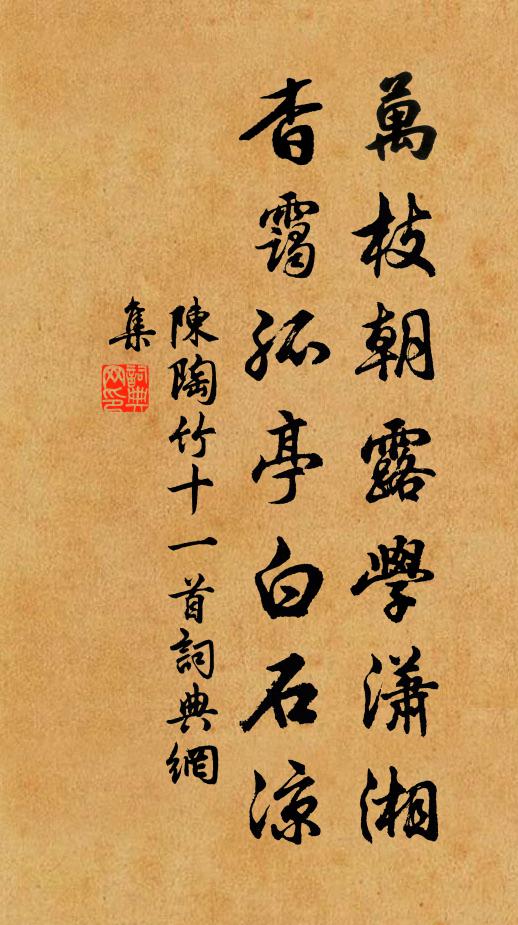 萬枝朝露學瀟湘
杳靄孤亭白石涼
陳陶竹十一首詞典網
集
詞典網印